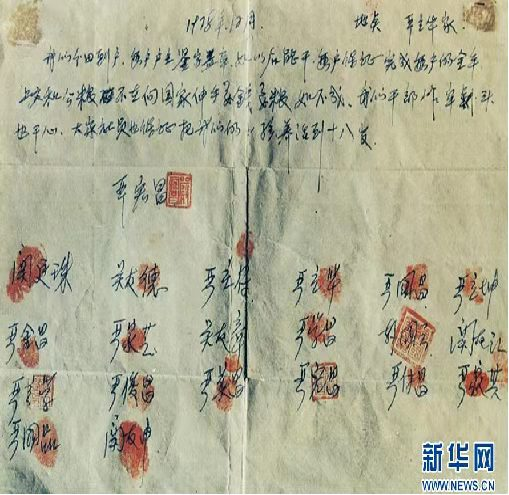 1978年12月 地点 严立华家
我们分田到户、每户户主签字盖章，如以后能干每户保证完成每户的全年
上交和公粮 不在向国家伸手要钱要粮 如不成、我们干部作牢刹头
也干心、大家社员也保证把我们的小孩、养活到十八岁.
严宏昌
关廷珠 关友德 严立符 严立华 严国昌 严立坤
严金昌 严家芝 关友章 严学昌 韩国云 关友江
严立学 严俊昌 严美昌 严宏昌 严付昌 严家其
严国品 关友申
新华网
WWW.NEWS.CN